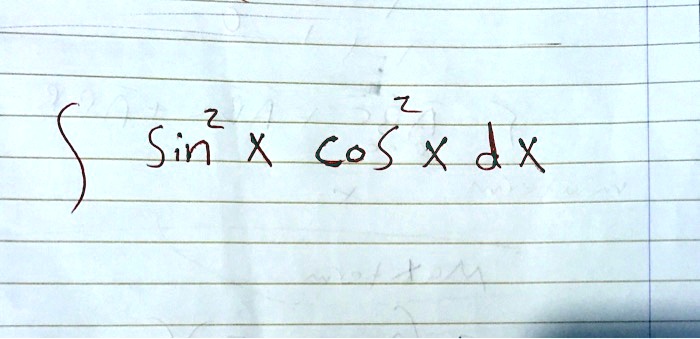 ∫ sin² x cos² x dx